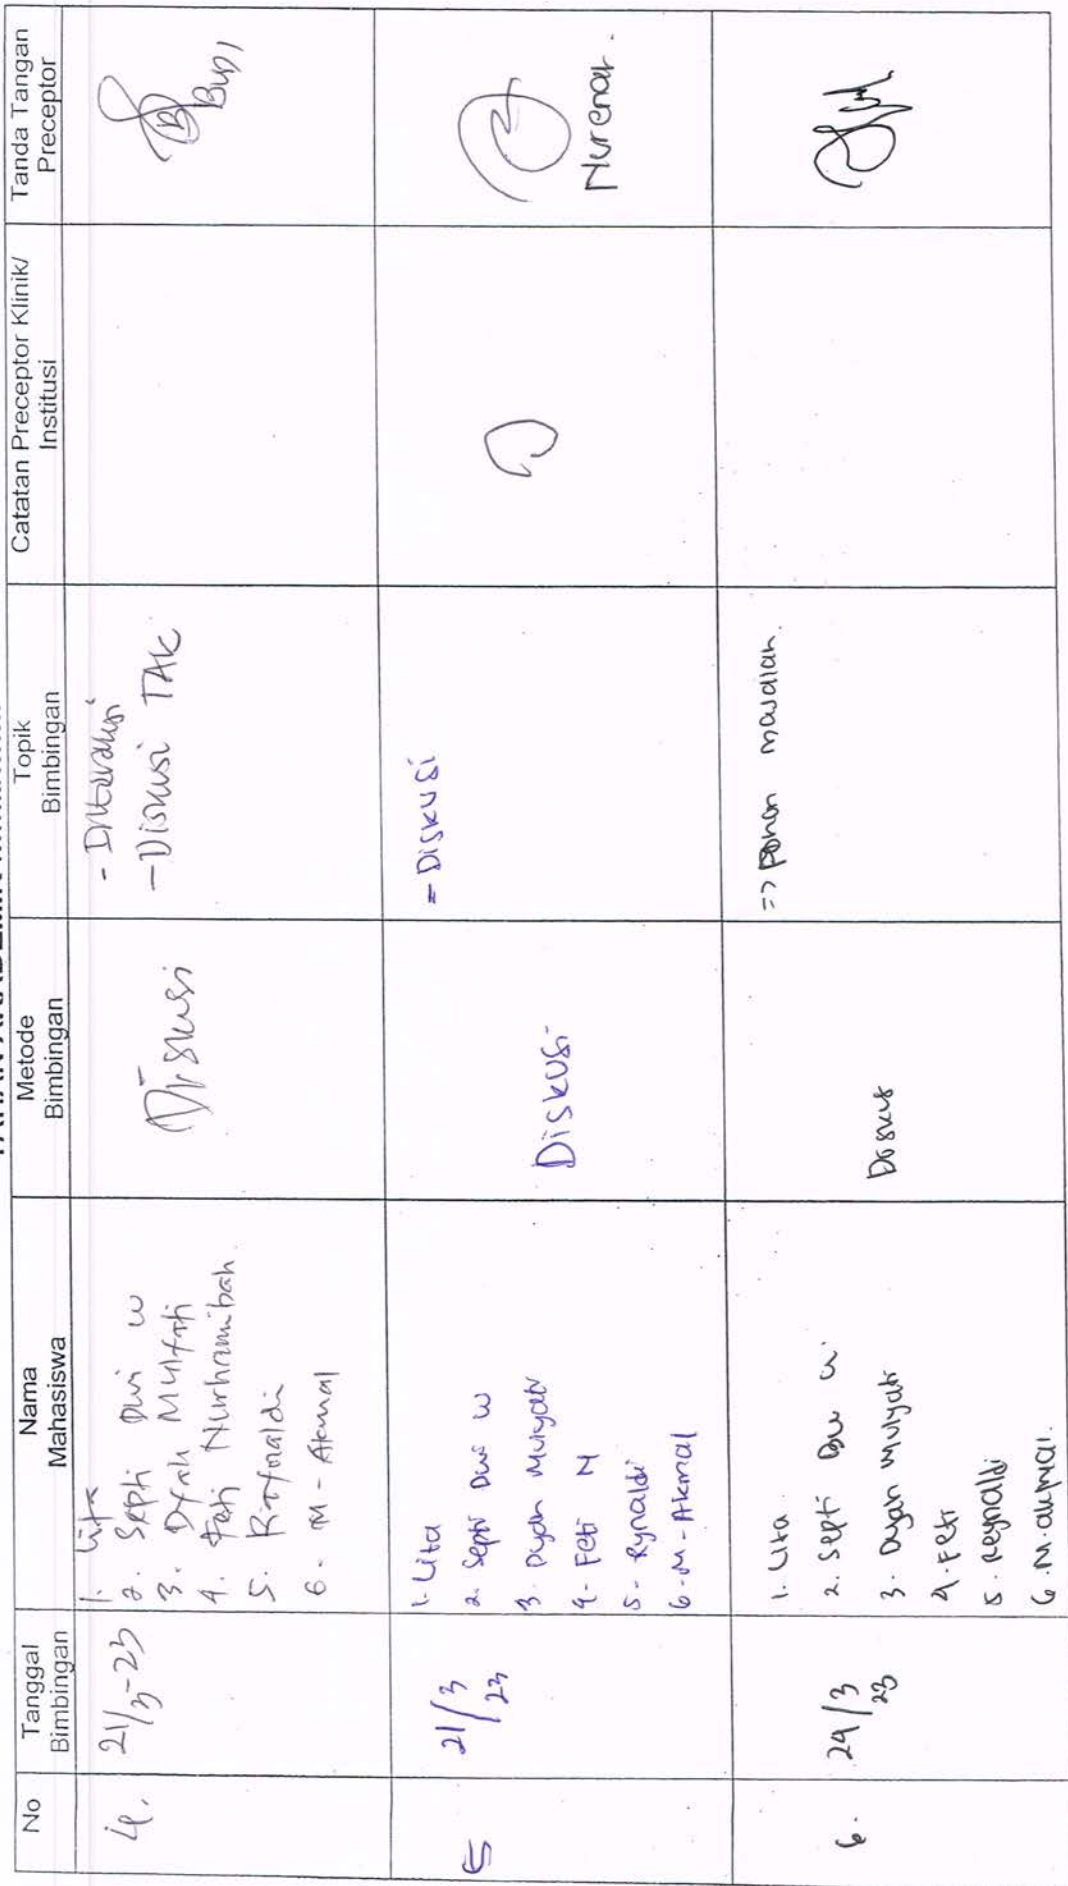 No
Tanggal
Bimbingan
Nama
Mahasiswa
Metode
Bimbingan
Topik
Bimbingan
Catatan Preceptor Klinik/
Institusi
Tanda Tangan
Preceptor
4.
21/3-23
1. Lita
2. Septi Dwi W
3. Dyah Mulyati
4. Feti Nurhamibah
5.
6. M - Akmal
Diskusi
- Interaksi
- Diskusi TAK
Budi
5
21/3
23
1. Lita
2. Septi Dwi W
3. Dyah Mulyati
4. Feti N
5. Rynaldi
6. M - Akmal
Diskusi
= Diskusi
6.
24/3
23
1. Lita
2. Septi Dwi W
3. Dyah Mulyati
4. Feti
5. Reynaldi
6. M. Akmal.
Diskus
=> Pohon masalah.